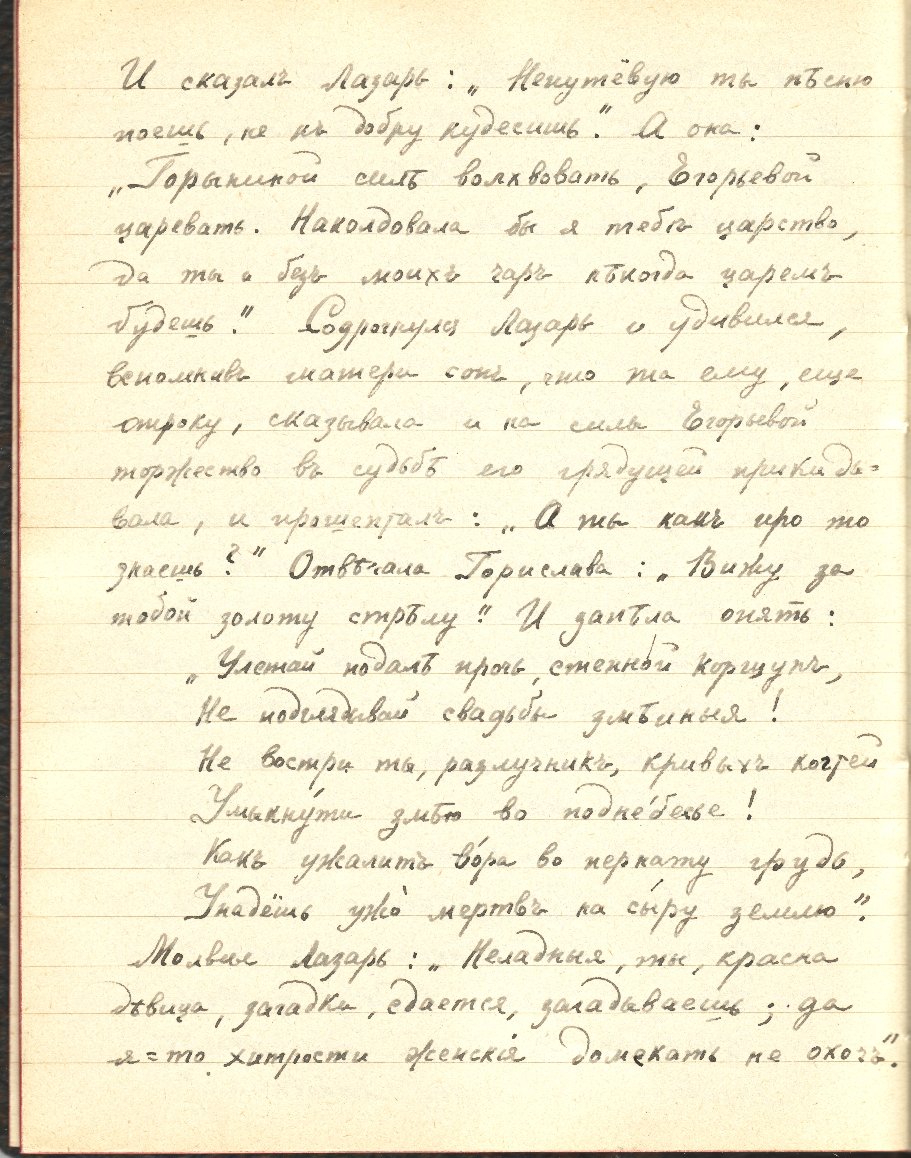 И сказалъ Лазарь: „Непутёвую ты пѣсню
поешь, не къ добру кудесишь." А она:
„Горыниной силѣ волхвовать, Егорьевой
царевать. Наколдовала бы я тебѣ царство,
да ты и безъ моихъ чаръ нѣкогда царемъ
будешь." Содрогнулся Лазарь и удивился,
вспомнивъ матери сонъ, что та ему, еще
отроку, сказывала и на силы Егорьевой
торжество въ судьбѣ его грядущей прикиды=
вала, и прошепталъ: „А ты какъ про то
знаешь?" Отвѣчала Горислава: „Вижу за
тобой золоту стрѣлу." И запѣла опять:
„Улетай подалѣ прочь, степно́й коршунъ,
Не подглядывай свадьбы змѣиныя!
Не востри ты, разлучникъ, кривыхъ когтей
Умыкну́ти змѣю во подне́бесье!
Какъ ужалитъ во́ра во пернату грудь,
Упадёшь ужо̀ мертвъ на сы́ру землю".
Молвил Лазарь: „Неладныя, ты, красна
дѣвица, загадки, сдается, загадываешь; да
я=то хитрости женскія домекать не охочъ".